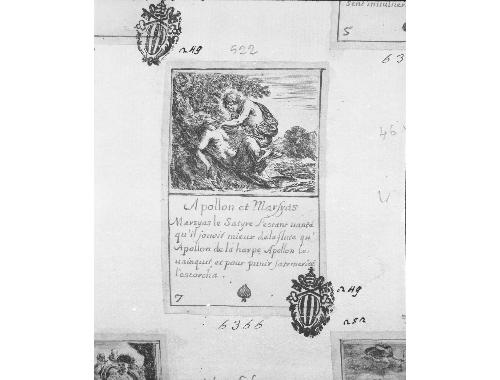 sent invulner
5
249
522
63
46
Apollon et Marsyas
Marsyas le Satyre s'estant vanté
qu'il jouoit mieux de la flute qu'
Apollon de la harpe Apollon le
vainquit, et pour punir sa temerité
l'escorcha.
7
249
6366
252